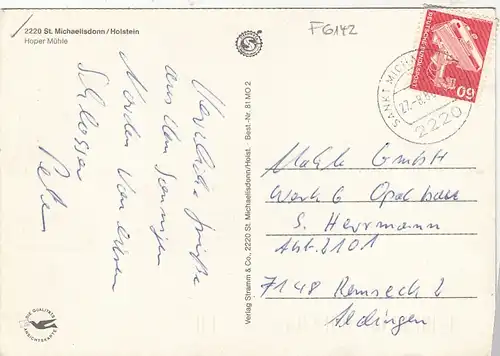 2220 St. Michaelisdonn/Holstein
Hoper Mühle
F6142
Herzliche Grüße
aus dem Sonnigen
Norden von eurem
Schlosser
Peter
Verlag Stramm & Co., 2220 St. Michaelisdonn/Holst. Best.-Nr. 81 MO 2
DEUTSCHE BUNDESPOST
60
SANKT MICHA
27.-8.8
2220
Mahle GmbH
Werk 6
S. Herrmann
Abt. 2101
7148 Remseck 2
Aldingen
DIE QUALITÄTS
ANSICHTSKARTE